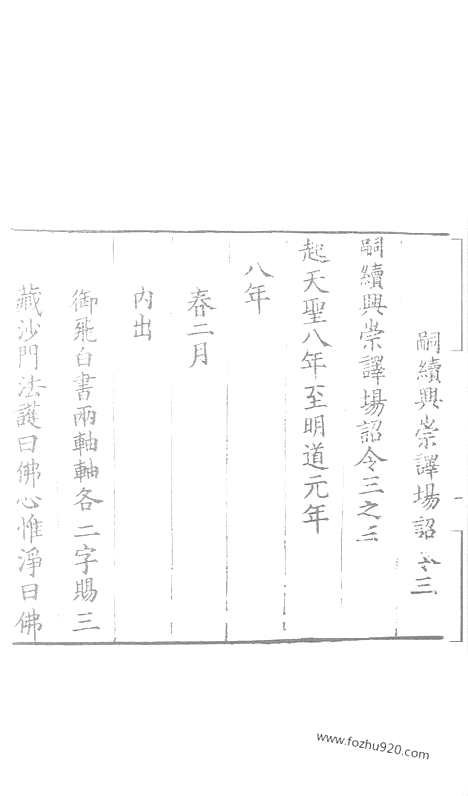 嗣續興崇譯場詔令三
嗣續興崇譯場詔令三之三
起天聖八年至明道元年
八年
春二月
內出
御飛白書兩軸軸各二字賜三
藏沙門法護曰佛心惟淨曰佛
www.fozhu920.com